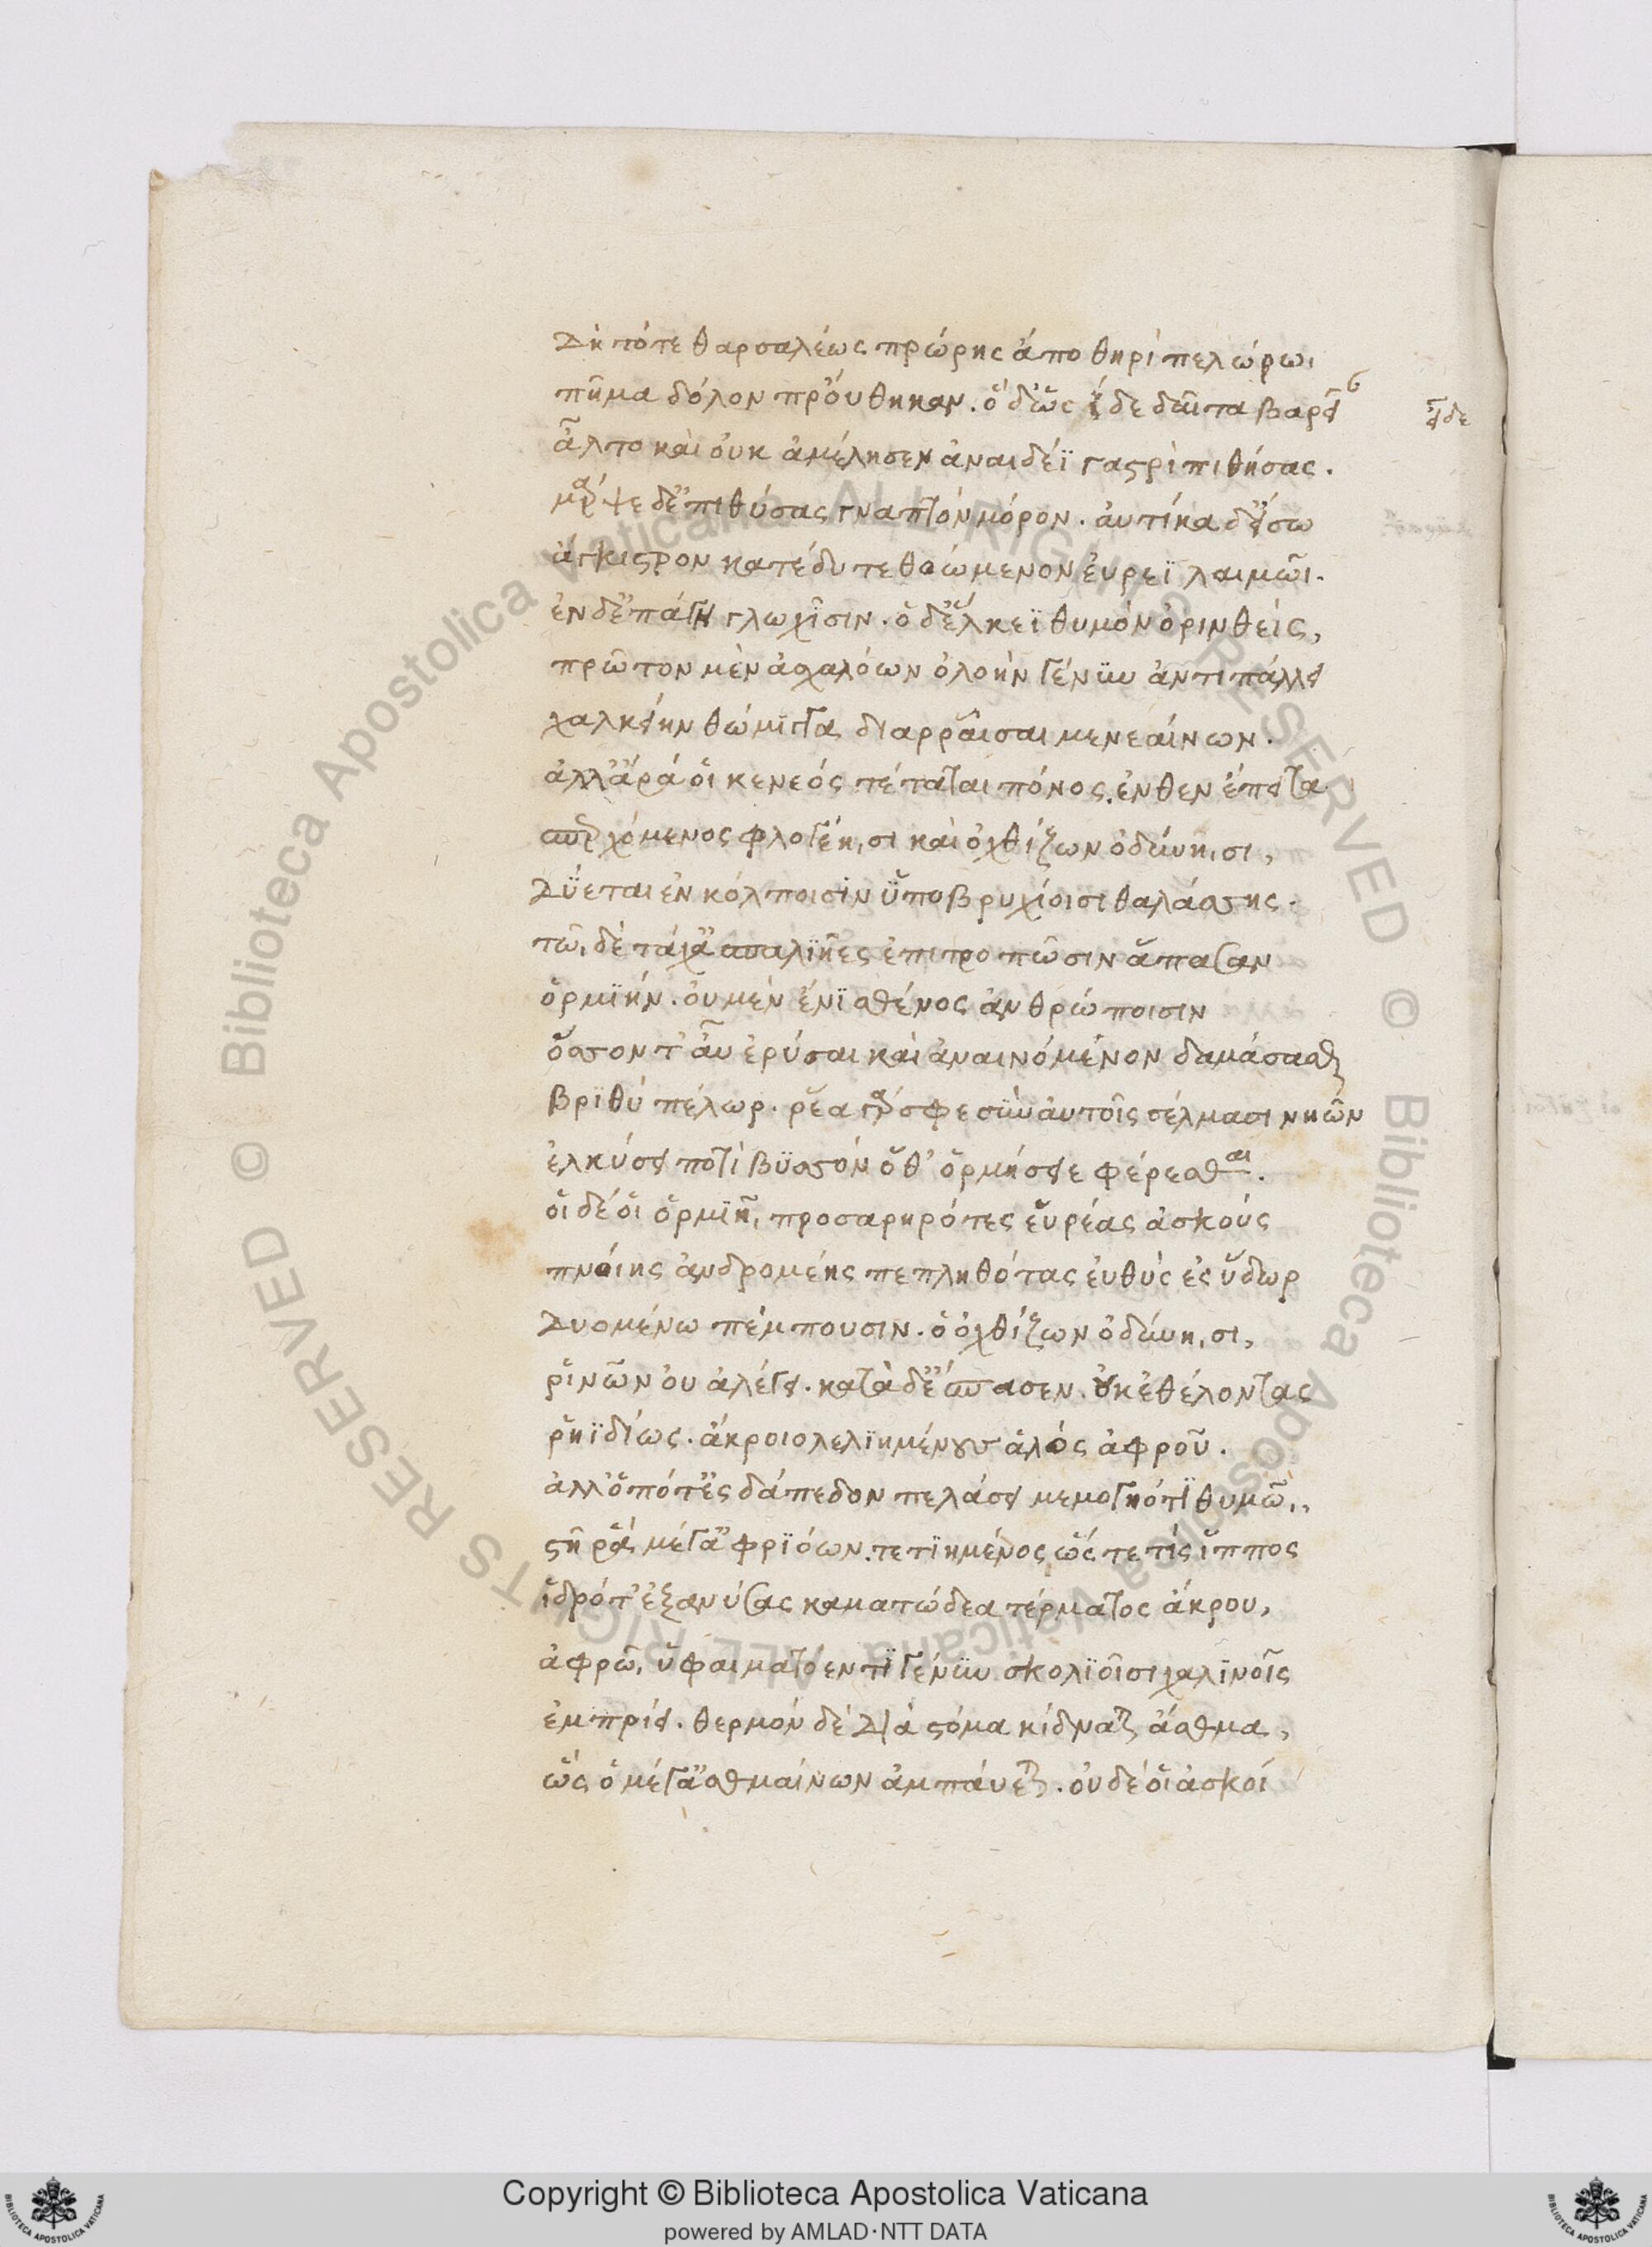 Δὴ τότε θαρσαλέως πρώρης άπο θηρὶ πελώρωι
πῆμα δόλον προύθηκαν. ὁ δ' ὡς ίδε δαῖτα βαρεῖ 6 εἶδε
ἆλτο καὶ ουκ ἀμέλησεν ἀναιδέϊ γαστρὶ πιθήσας.
μάρψε δ' ἐπιθύσας γναπτὸν μόρον. ἀυτίκα δ' είσω
άγκιστρον κατέδυ τεθοώμενον ἐυρεϊ λαιμῶι.
ἐν δ' ἐπάγη γλωχῖσιν. ὁ δ' ἕλκεϊ θυμὸν ὀρινθεὶς,
πρῶτον μὲν ἀσχαλόων ὀλοὴν γένυν ἀντιπάλλει
χαλκείην θώμιγγα διαρραῖσαι μενεαίνων.
ἀλλ' άρά ὁι κενεός πέταται πόνος. ἐνθεν έπειτα
σπερχόμενος φλογέη,σι καὶ ὀχθίζων ὀδύνη,σι,
Δύεται ἐν κόλποισιν ὑποβρυχίοισι θαλάσσης.
τῶ, δὲ τάχα σπαλιῆες ἐπιτροπῶσιν ἅπασαν
ὁρμιήν. οὐ μὲν ένι σθένος ἀνθρώποισιν
ὅσσον τ' ἂν ἐρύσαι καὶ ἀναινόμενον δαμάσασθαι
βριθύ πέλωρ. ῥέα γάρ σφε σὺν ἀυτοῖς σέλμασι νηῶν
ἑλκύσει ποτὶ βυσσὸν ὅθ' ὁρμήσειε φέρεσθαι.
ὁι δέ ὁι ὁρμιῆ, προσαρηρότες ἐυρέας ἀσκούς
πνοίης ἀνδρομέης πεπληθότας ἐυθὺς ἐς ὕδωρ
Δυομένω πέμπουσιν. ὁ ὀχθίζων ὀδύνη,σι,
ῥινῶν ου ἀλέγει. κατὰ δ' έσπασεν ουκ ἐθέλοντας
ῥηϊδίως. άκροιο λελιημένους ἁλὸς ἀφροῦ.
ἀλλ' ὁπότ' ἐς δάπεδον πελάσει μεμογηότι θυμῶ,,
στῆ ῥὰ μέγα φριόων. τετιημένος ὥς τε τὶς ἵππος
ἱδρότ' ἐξανύσας καματώδεα τέρματος άκρου,
ἀφρῶ, ὑφαιματόεντι γένυν σκολιοῖσι χαλινοῖς
ἐμπρίει. θερμόν δὲ Διά στόμα κίδναται άσθμα,
ὣς ὁ μέγα ἀσθμαίνων ἀμπάυεται. ὀυ δέ ὁι ἀσκοί
Copyright © Biblioteca Apostolica Vaticana
powered by AMLAD·NTT DATA